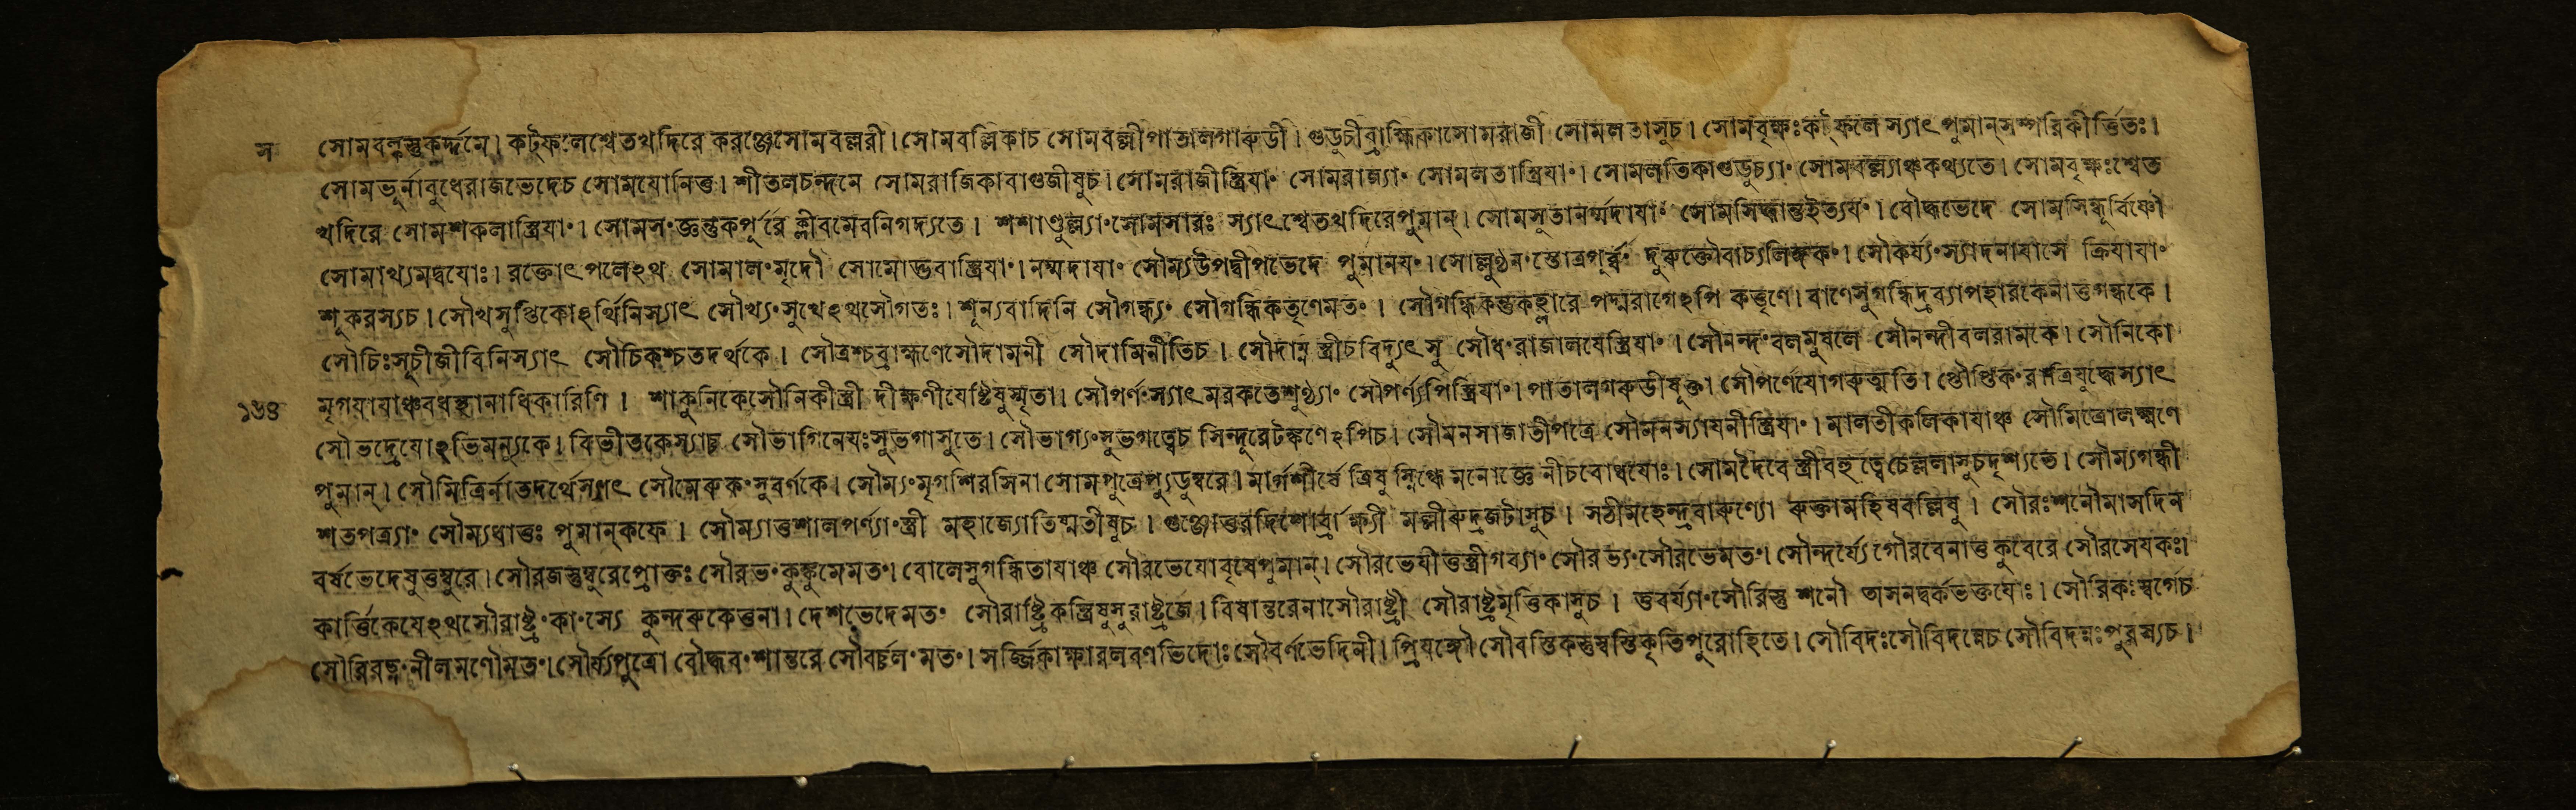 স সোমবল্কস্তুকর্দ্দমে। কট্ফলেশ্বেতখদিরে করঞ্জেসোমবল্লরী। সোমবল্লিকাচ সোমবল্লীপাতালগারুডী। গুডুচীব্রাহ্মিকাসোমরাজী সোমলতাসুচ। সোমবৃক্ষঃকট্ফলে স্যাৎপুমান্সম্পরিকীর্ত্তিতঃ।
সোমভূর্নাবুধেরাজভেদেচ সোমযোনিত্তু। শীতলচন্দনে সোমরাজিকাবাগুজীষুচ। সোমরাজীস্ত্রিযাং সোমরাল্যাং সোমলতাস্ত্রিযাং। সোমলতিকাগুডুচ্যাং সোমবল্ল্যাঞ্চকথ্যতে। সোমবৃক্ষঃশ্বেত
খদিরে সোমশকলাস্ত্রিযাং। সোমসংজ্ঞন্তুকর্পূরে ক্লীবমেবনিগদ্যতে। শশাণ্ডুল্যাংসোমসারঃ স্যাৎশ্বেতখদিরেপুমান্। সোমসুতানর্ম্মদাযাং সোমসিদ্ধান্তইত্যযং। বৌদ্ধভেদে সোমসিন্ধুর্বিষ্ণৌ
সোমাখ্যমদ্বযোঃ। রক্তোৎপলেঽথ সোমালংমৃদৌ সোমোদ্ভবাস্ত্রিযাং। নর্ম্মদাযাং সৌম্যউপদ্বীপভেদে পুমানযং। সোল্লুণ্ঠনংস্তোত্রপূর্ব্বং দুরুক্তৌবাচ্যলিঙ্গকং। সৌকর্য্যংস্যাদনাযাসে ক্রিযাযাং
শূকরস্যচ। সৌখসুপ্তিকোঽর্থিনিস্যাৎ সৌখ্যংসুখেঽথসৌগতঃ। শূন্যবাদিনি সৌগন্ধ্যং সৌগন্ধিকতৃণেমতং। সৌগন্ধিকন্তুকহ্লারে পদ্মরাগেঽপি কত্তৃণে। বাণেসুগন্ধিদ্রব্যাপহারকেনাত্তগন্ধকে।
সৌচিঃসূচীজীবিনিস্যাৎ সৌচিকশ্চতদর্থকে। সৌত্রশ্চব্রাহ্মণেসৌদামনী সৌদামিনীতিচ। সৌদাম্ন স্ত্রীচবিদ্যুৎসু সৌধংরাজালযেস্ত্রিযাং। সৌনন্দংবলমুষলে সৌনন্দীবলরামকে। সৌনিকো
১৬৪ মৃগযাযাঞ্চবধস্থানাধিকারিণি। শাকুনিকেসৌনিকীস্ত্রী দীক্ষণীযেষ্টিষুস্মৃতা। সৌপর্ণংস্যাৎমরকতেশুণ্ঠ্যাং সৌপর্ণ্যপিস্ত্রিযাং। পাতালগরুডীষূক্তা সৌপর্ণেযোগরুত্মতি। সৌপ্তিকংরাত্রিযুদ্ধেস্যাৎ
সৌভদ্রেযোঽভিমন্যুকে। বিভীতকেস্যাচ্চ সৌভাগিনেযঃসুভগাসুতে। সৌভাগ্যংসুভগত্বেচ সিন্দূরেটঙ্কণেঽপিচ। সৌমনসাজাতীপত্রে সৌমনস্যাযনীস্ত্রিযাং। মালতীকলিকাযাঞ্চ সৌমিত্রোলক্ষ্মণে
পুমান্। সৌমিত্রির্নাতদর্থেস্যাৎ সৌমেরুকংসুবর্ণকে। সৌম্যংমৃগশিরসিনা সোমপুত্রেপ্যুডুম্বরে। মার্গশীর্ষে ত্রিষুস্নিগ্ধে মনোজ্ঞে নীচবোধযোঃ। সোমদৈবে স্ত্রীবহুত্বেচেল্বলাসুচদৃশ্যতে। সৌম্যগন্ধী
শতপত্র্যাং সৌম্যধাতুঃ পুমান্কফে। সৌম্যাতুশালপর্ণ্যাংস্ত্রী মহাজ্যোতিষ্মতীষুচ। গুঞ্জোত্তরদিশোর্ব্রাহ্ম্যী মল্লীরুদ্রজটাসুচ। সঠীমহেন্দ্রবারুণ্যো রুক্তামহিষবল্লিষু। সৌরঃশনৌমাসদিন
বর্ষভেদেষুতুম্বুরে। সৌরজন্তুম্বুরেপ্রোক্তঃ সৌরভংকুঙ্কুমেমতং। বোলেসুগন্ধিতাযাঞ্চ সৌরভেযোবৃষেপুমান্। সৌরভেযীতুস্ত্রীগব্যাং সৌরভ্যংসৌরভেমতং। সৌন্দর্য্যেগৌরবেনাতু কুবেরে সৌরসেযকঃ।
কার্ত্তিকেযেঽথসৌরাষ্ট্রংকাংস্যে কুন্দরুকেতুনা। দেশভেদেমতং সৌরাষ্ট্রিকস্ত্রিষুসুরাষ্ট্রজে। বিষান্তরেনাসৌরাষ্ট্রী সৌরাষ্ট্রমৃত্তিকাসুচ। তুবর্য্যাংসৌরিস্তু শনৌ অসনদ্বর্কভক্তযোঃ। সৌরিকঃস্বর্গেচ
সৌরিরত্নংনীলমণৌমতং। সৌর্য্যপুত্রো বৌদ্ধবংশান্তরে সৌবর্চ্চলংমতং। সর্জ্জিকাক্ষারলবণভিদোঃসৌবর্ণভেদিনী। প্রিযঙ্গৌ সৌবস্তিকস্তুস্বস্তিকৃতিপুরোহিতে। সৌবিদঃসৌবিদল্লেচ সৌবিদল্লঃপুরস্যচ।